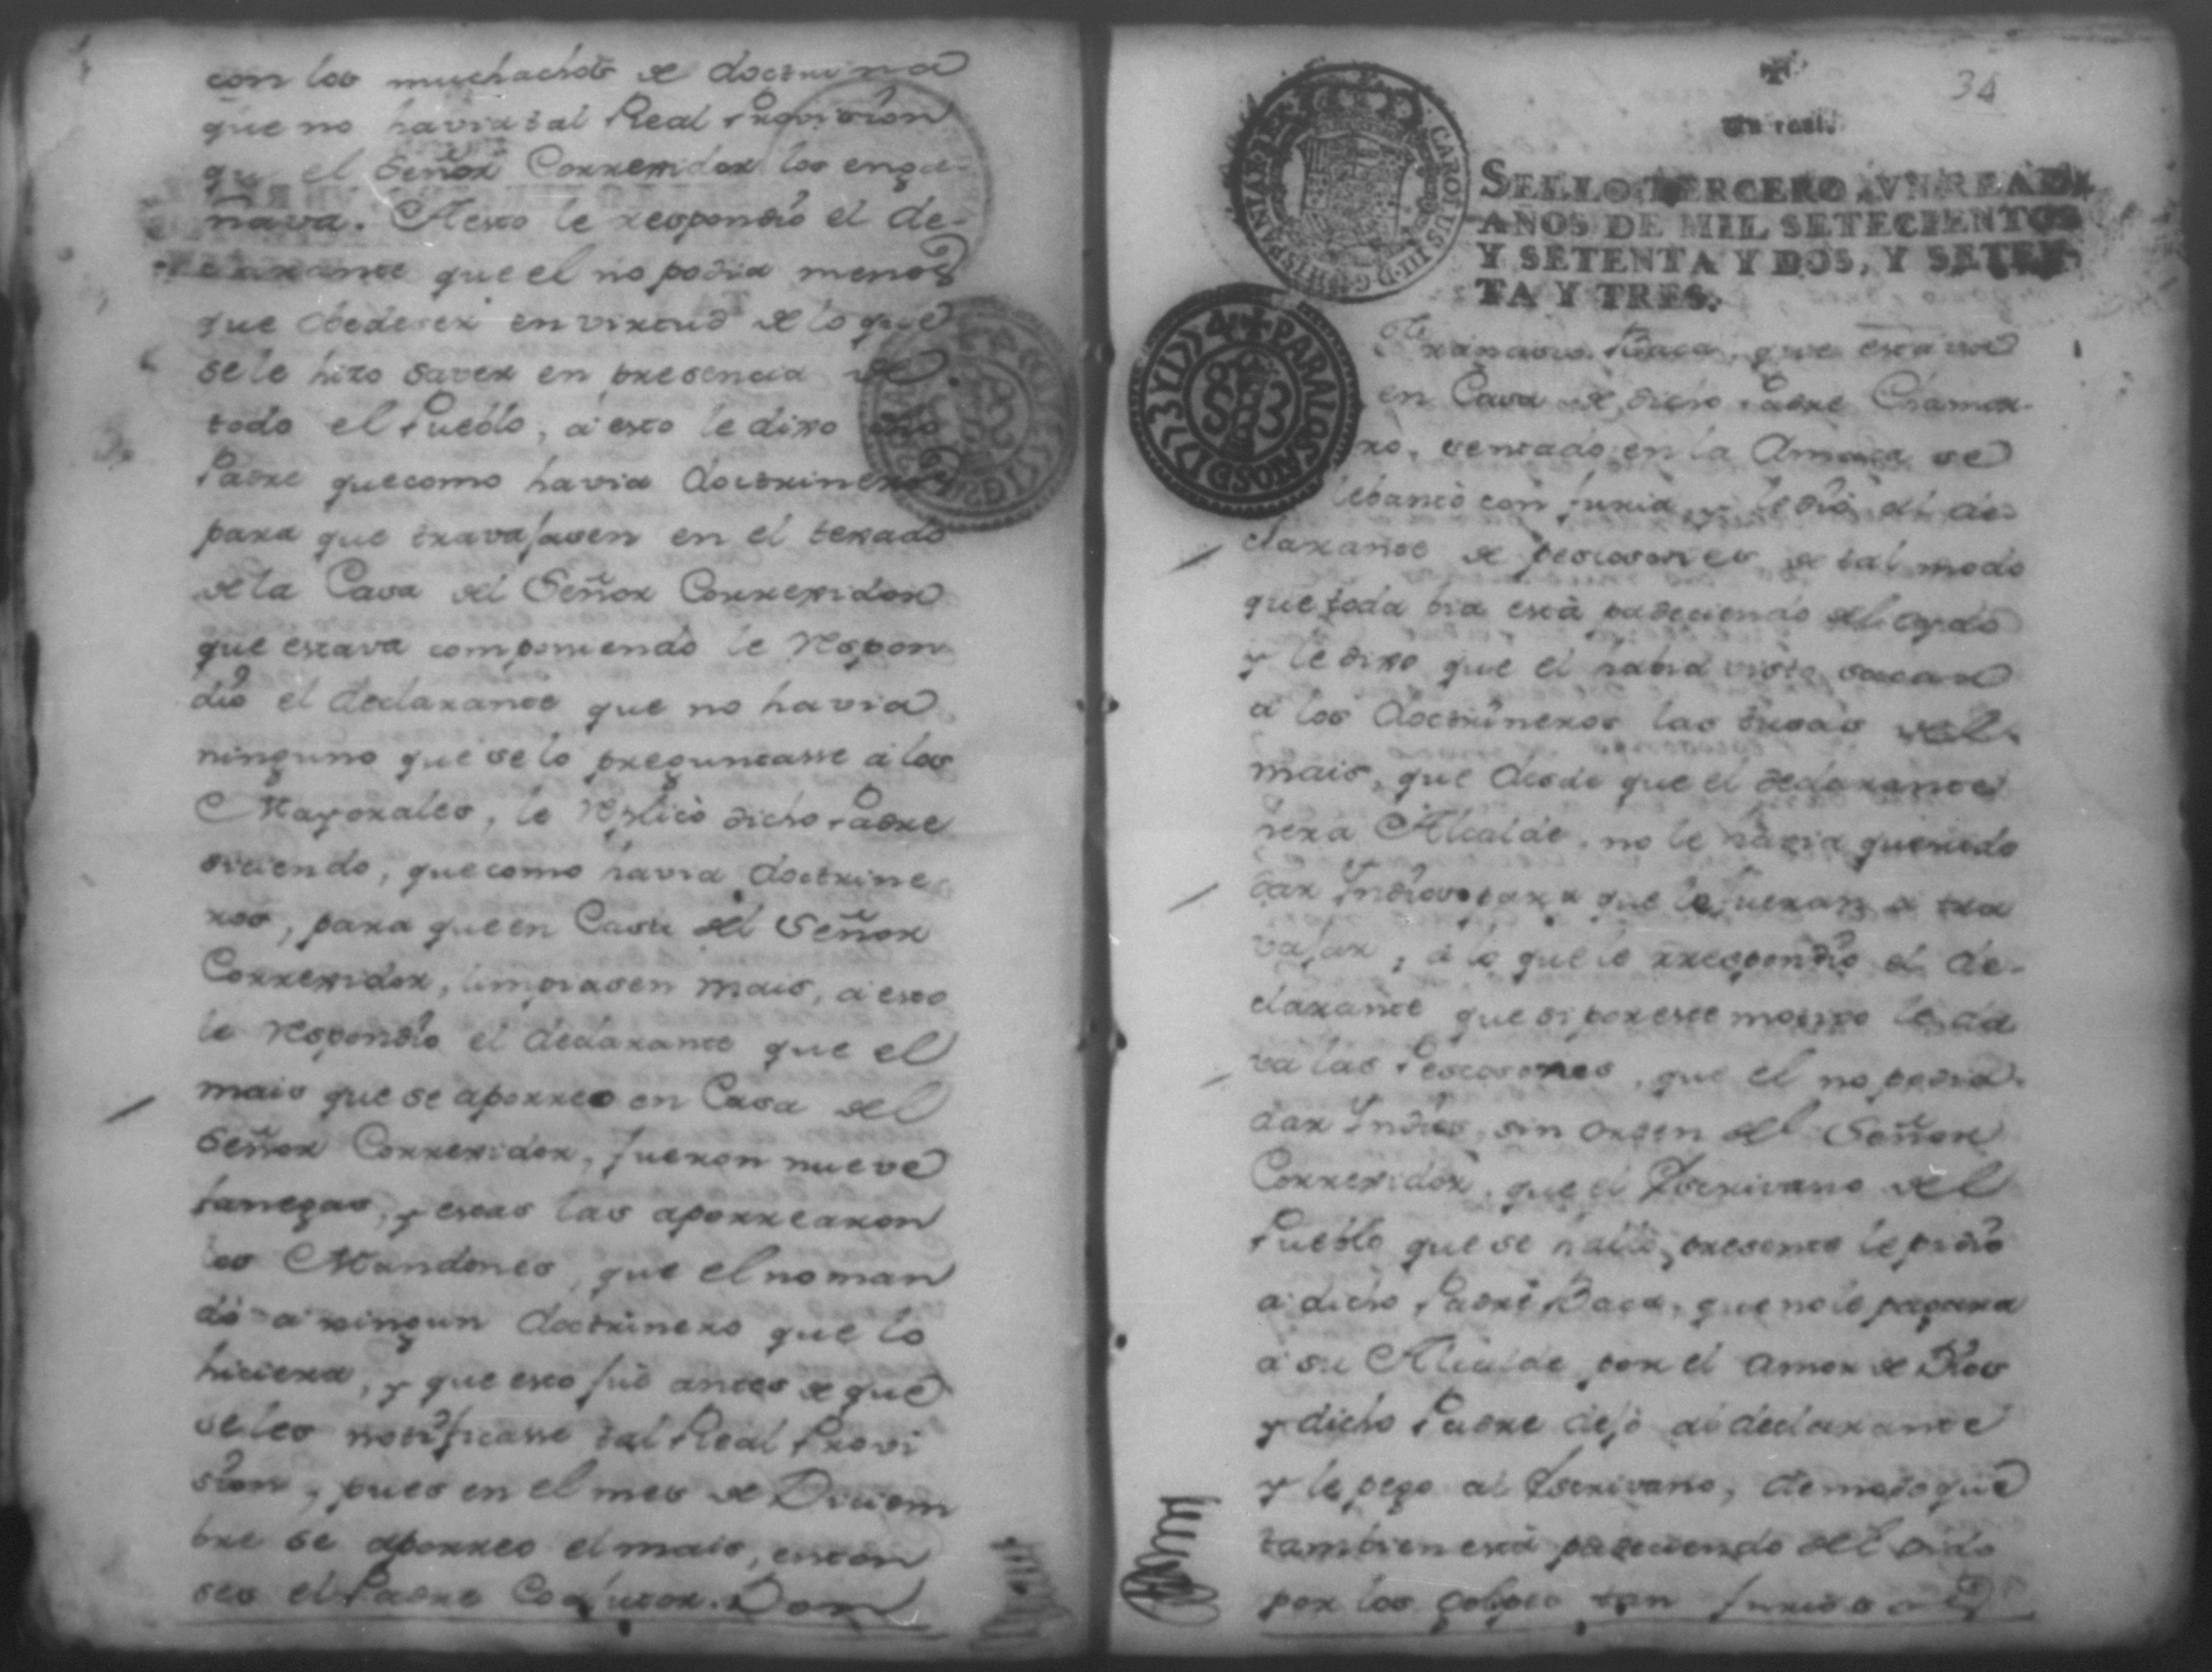 con los muchachos de doctrina
que no havia tal Real Provision
que el Señor Corregidor los enga-
ñava. A esto le respondió el de-
clarante que el no podia menos
que obedeser en virtud de lo que
se le hizo saver en presencia de
todo el Pueblo, á esto le dixo dho
Padre que como havia doctrineros
para que travajasen en el texado
de la Casa del Señor Corregidor
que estava componiendo le respon
dió el declarante que no havia
ninguno que se lo preguntasse á los
Mayorales, le replicó dicho Padre
diciendo, que como havia doctrine
ros, para que en Casa del Señor
Corregidor, limpiasen mais, á esto
le respondió el declarante que el
mais que se aporreo en Casa del
Señor Corregidor, fueron nueve
fanegas, y estas las aporrearon
los Mandones, que el no man
dó a ningun doctrinero que lo
hiciera, y que esto fué antes de que
se les notificasse tal Real Provi
sion, pues en el mes de Diciem
bre se aporreo el mais, enton
ses el Padre Coajutor Don
34
Un real.
SELLO TERCERO, VN REAL,
AÑOS DE MIL SETECIENTOS
Y SETENTA Y DOS, Y SETEN-
TA Y TRES.
CAROLUS III D G HISPANIAR REX
PARA LOS AÑOS D 1773 Y 1774
Baca, que estava
en Casa de dicho Padre
sentado en la Amaca se
lebantó con furia, y le dió al de-
clarante de pescosones de tal modo
que toda bia está padeciendo del oydo
y le dixo que el habia visto sacar
á los doctrineros las tusas del
mais, que desde que el declarante
hera Alcalde, no le havia querido
dar Indios para que le fueran a tra
vajar, á lo que le rrespondió el de-
clarante que si por este motivo le da
va las Pescosones, que el no podia
dar Indios, sin orden del Señor
Corregidor, que el Escrivano del
Pueblo que se halló presente le pidió
a dicho Padre Baca, que no le pegara
á su Alcalde por el amor de Dios
y dicho Padre dejó al declarante
y le pego al Escrivano, de modo que
tambien está padeciendo del oido
por los golpes tan furiosos